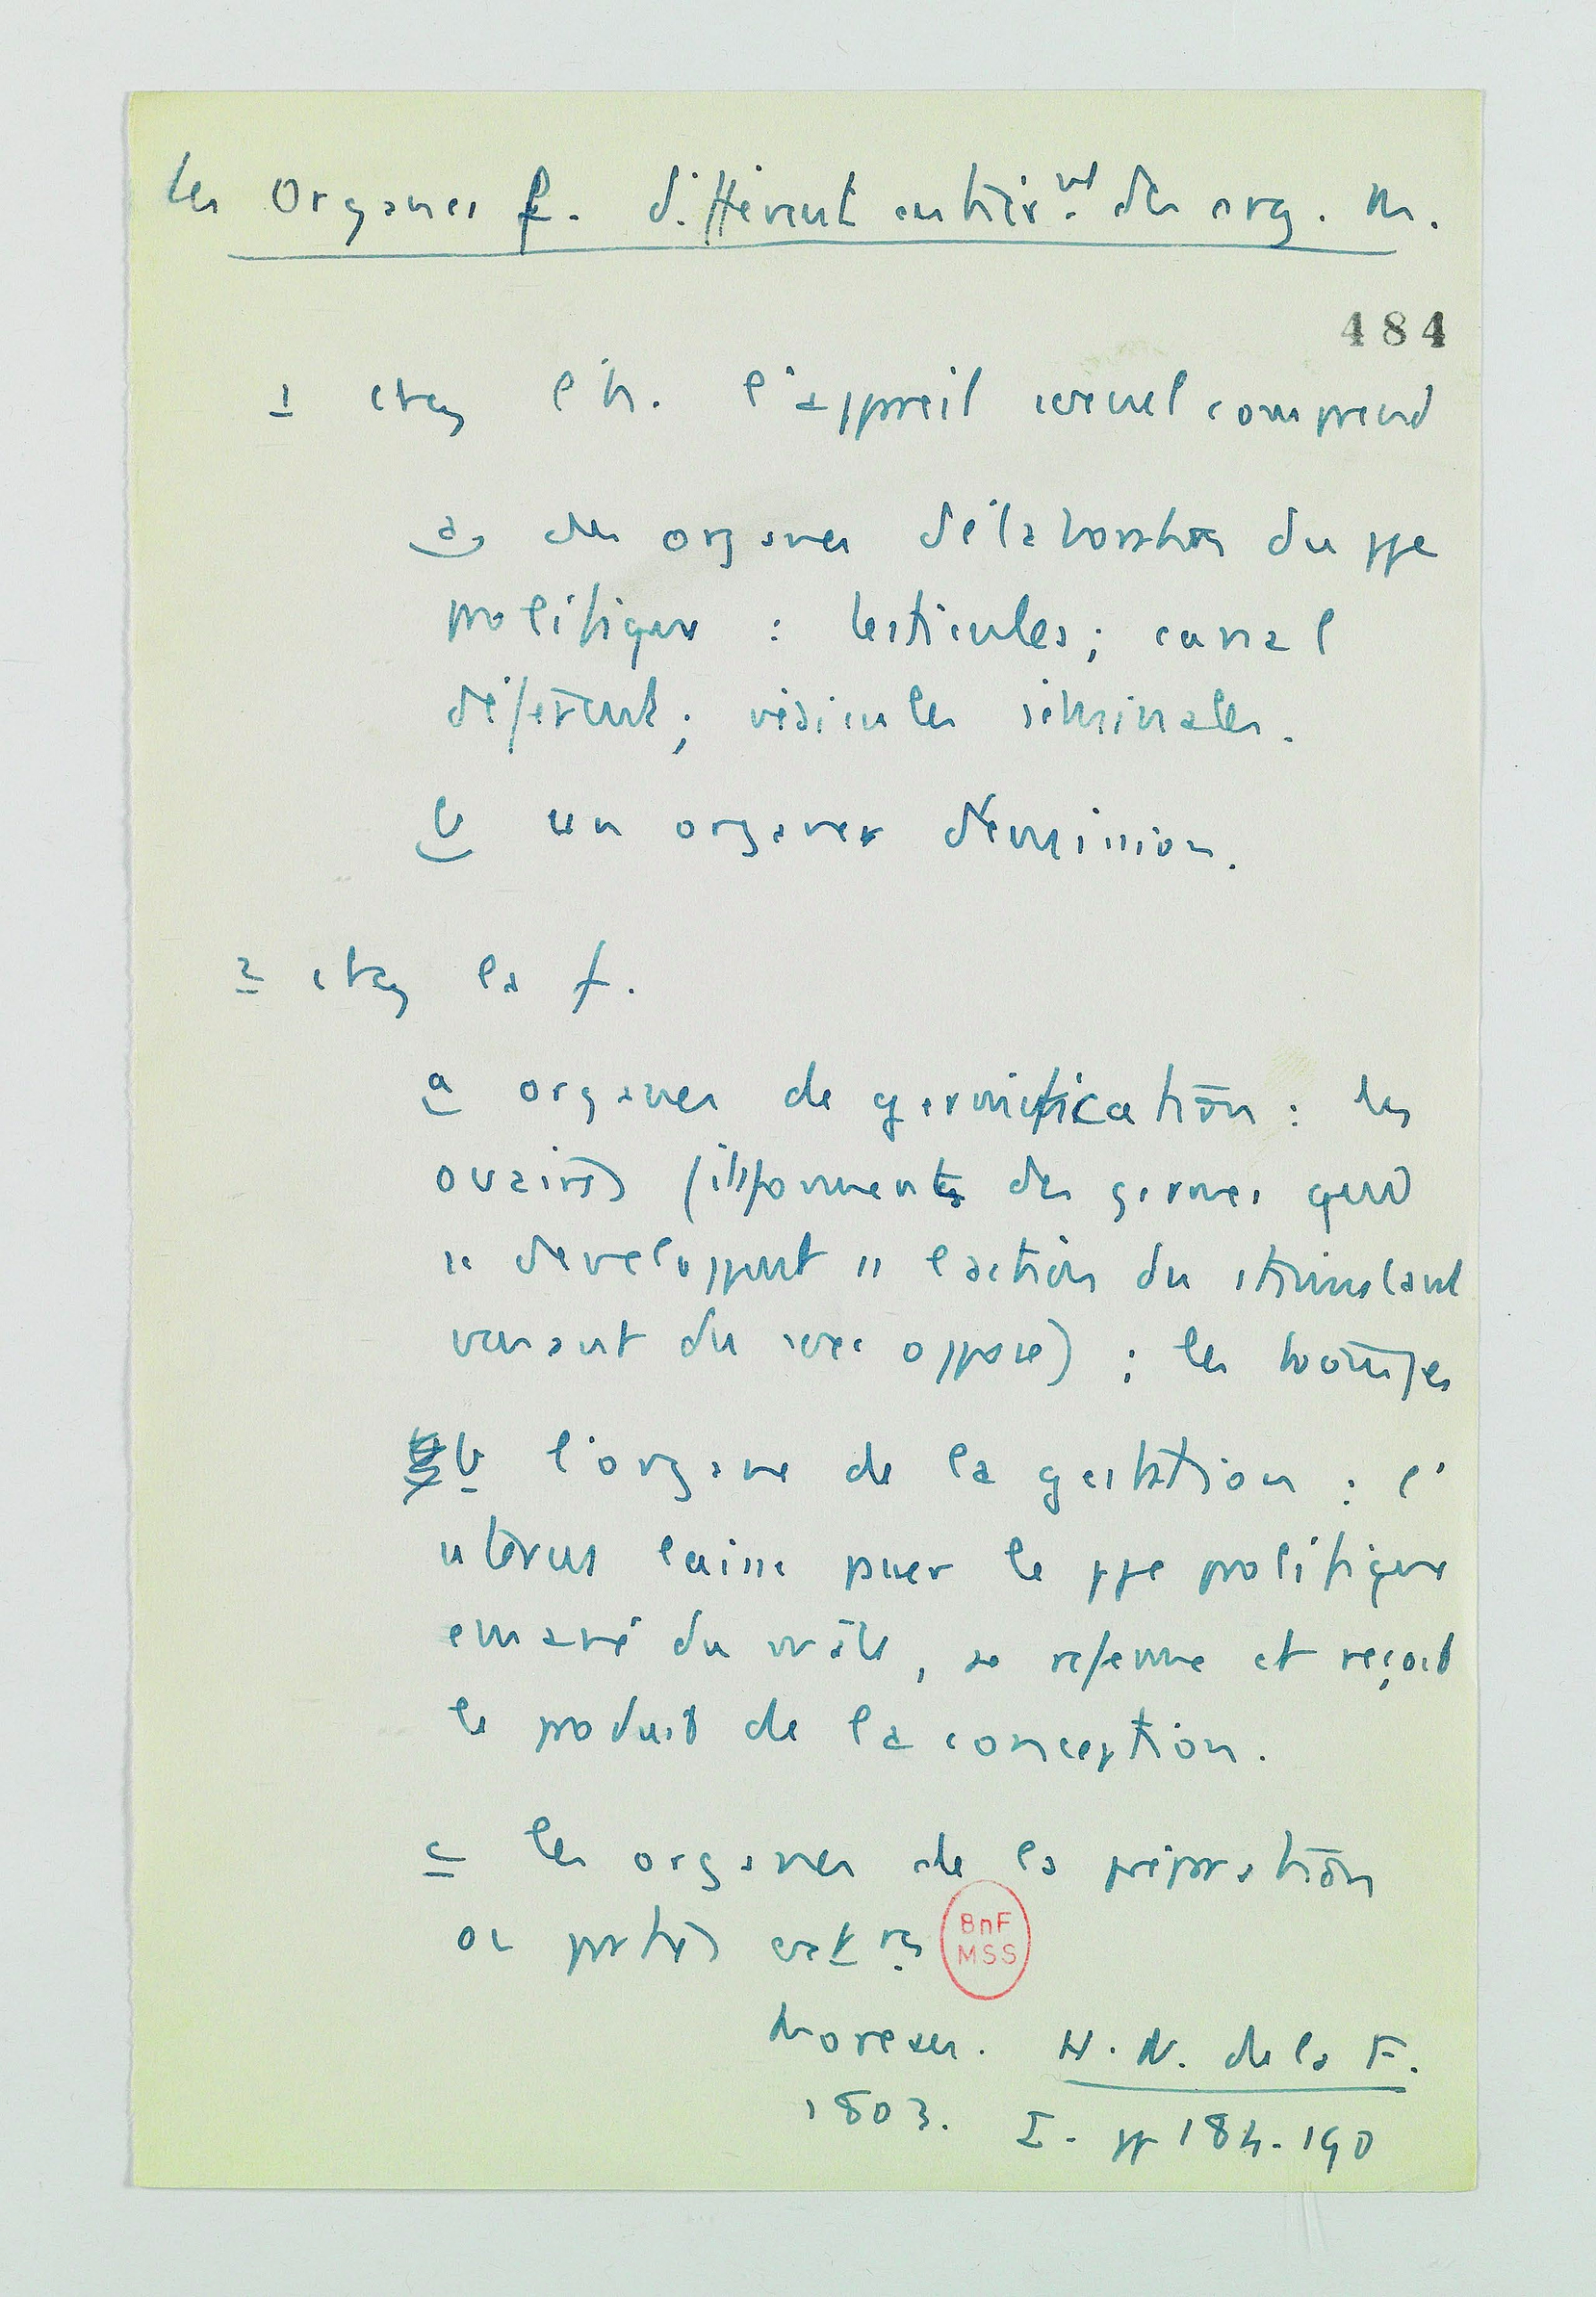 Les Organes f. diffèrent entièr.mt des org. m.
484
1 chez l'h. l'appareil sexuel comprend
a, des organes d'élaboration du ppe
prolifique : testicules ; canal
déférent ; vésicules séminales.
b un organe d'émission.
2 chez la f.
a organes de germification : les
ovaires (ils fournissent des germes qui
se développent ss l'action du stimulant
venant du sexe opposé) ; les trompes
b l'organe de la gestation : l'
utérus laisse passer le ppe prolifique
émané du mâle, se referme et reçoit
le produit de la conception.
c les organes de la préparation
ou parties ext res
BnF
MSS
Moreau. H. N. de la F.
1803. I. pp 184-190